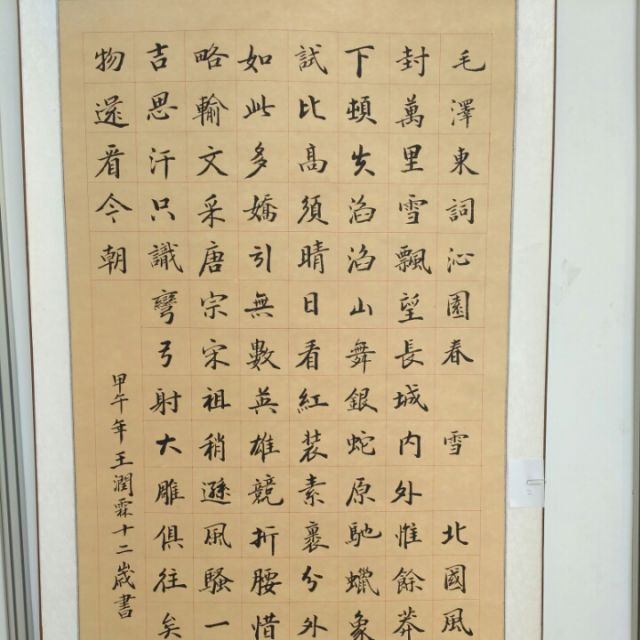 毛澤東詞沁園春 雪 北國風
封萬里雪飄望長城内外惟餘莽
下頓失滔滔山舞銀蛇原馳蠟象
試比高須晴日看紅裝素裹分外
如此多嬌引無數英雄競折腰惜
略輸文采唐宗宋祖稍遜風騷一
吉思汗只識彎弓射大雕俱往矣
物還看今朝
甲午年王潤霖十二歲書